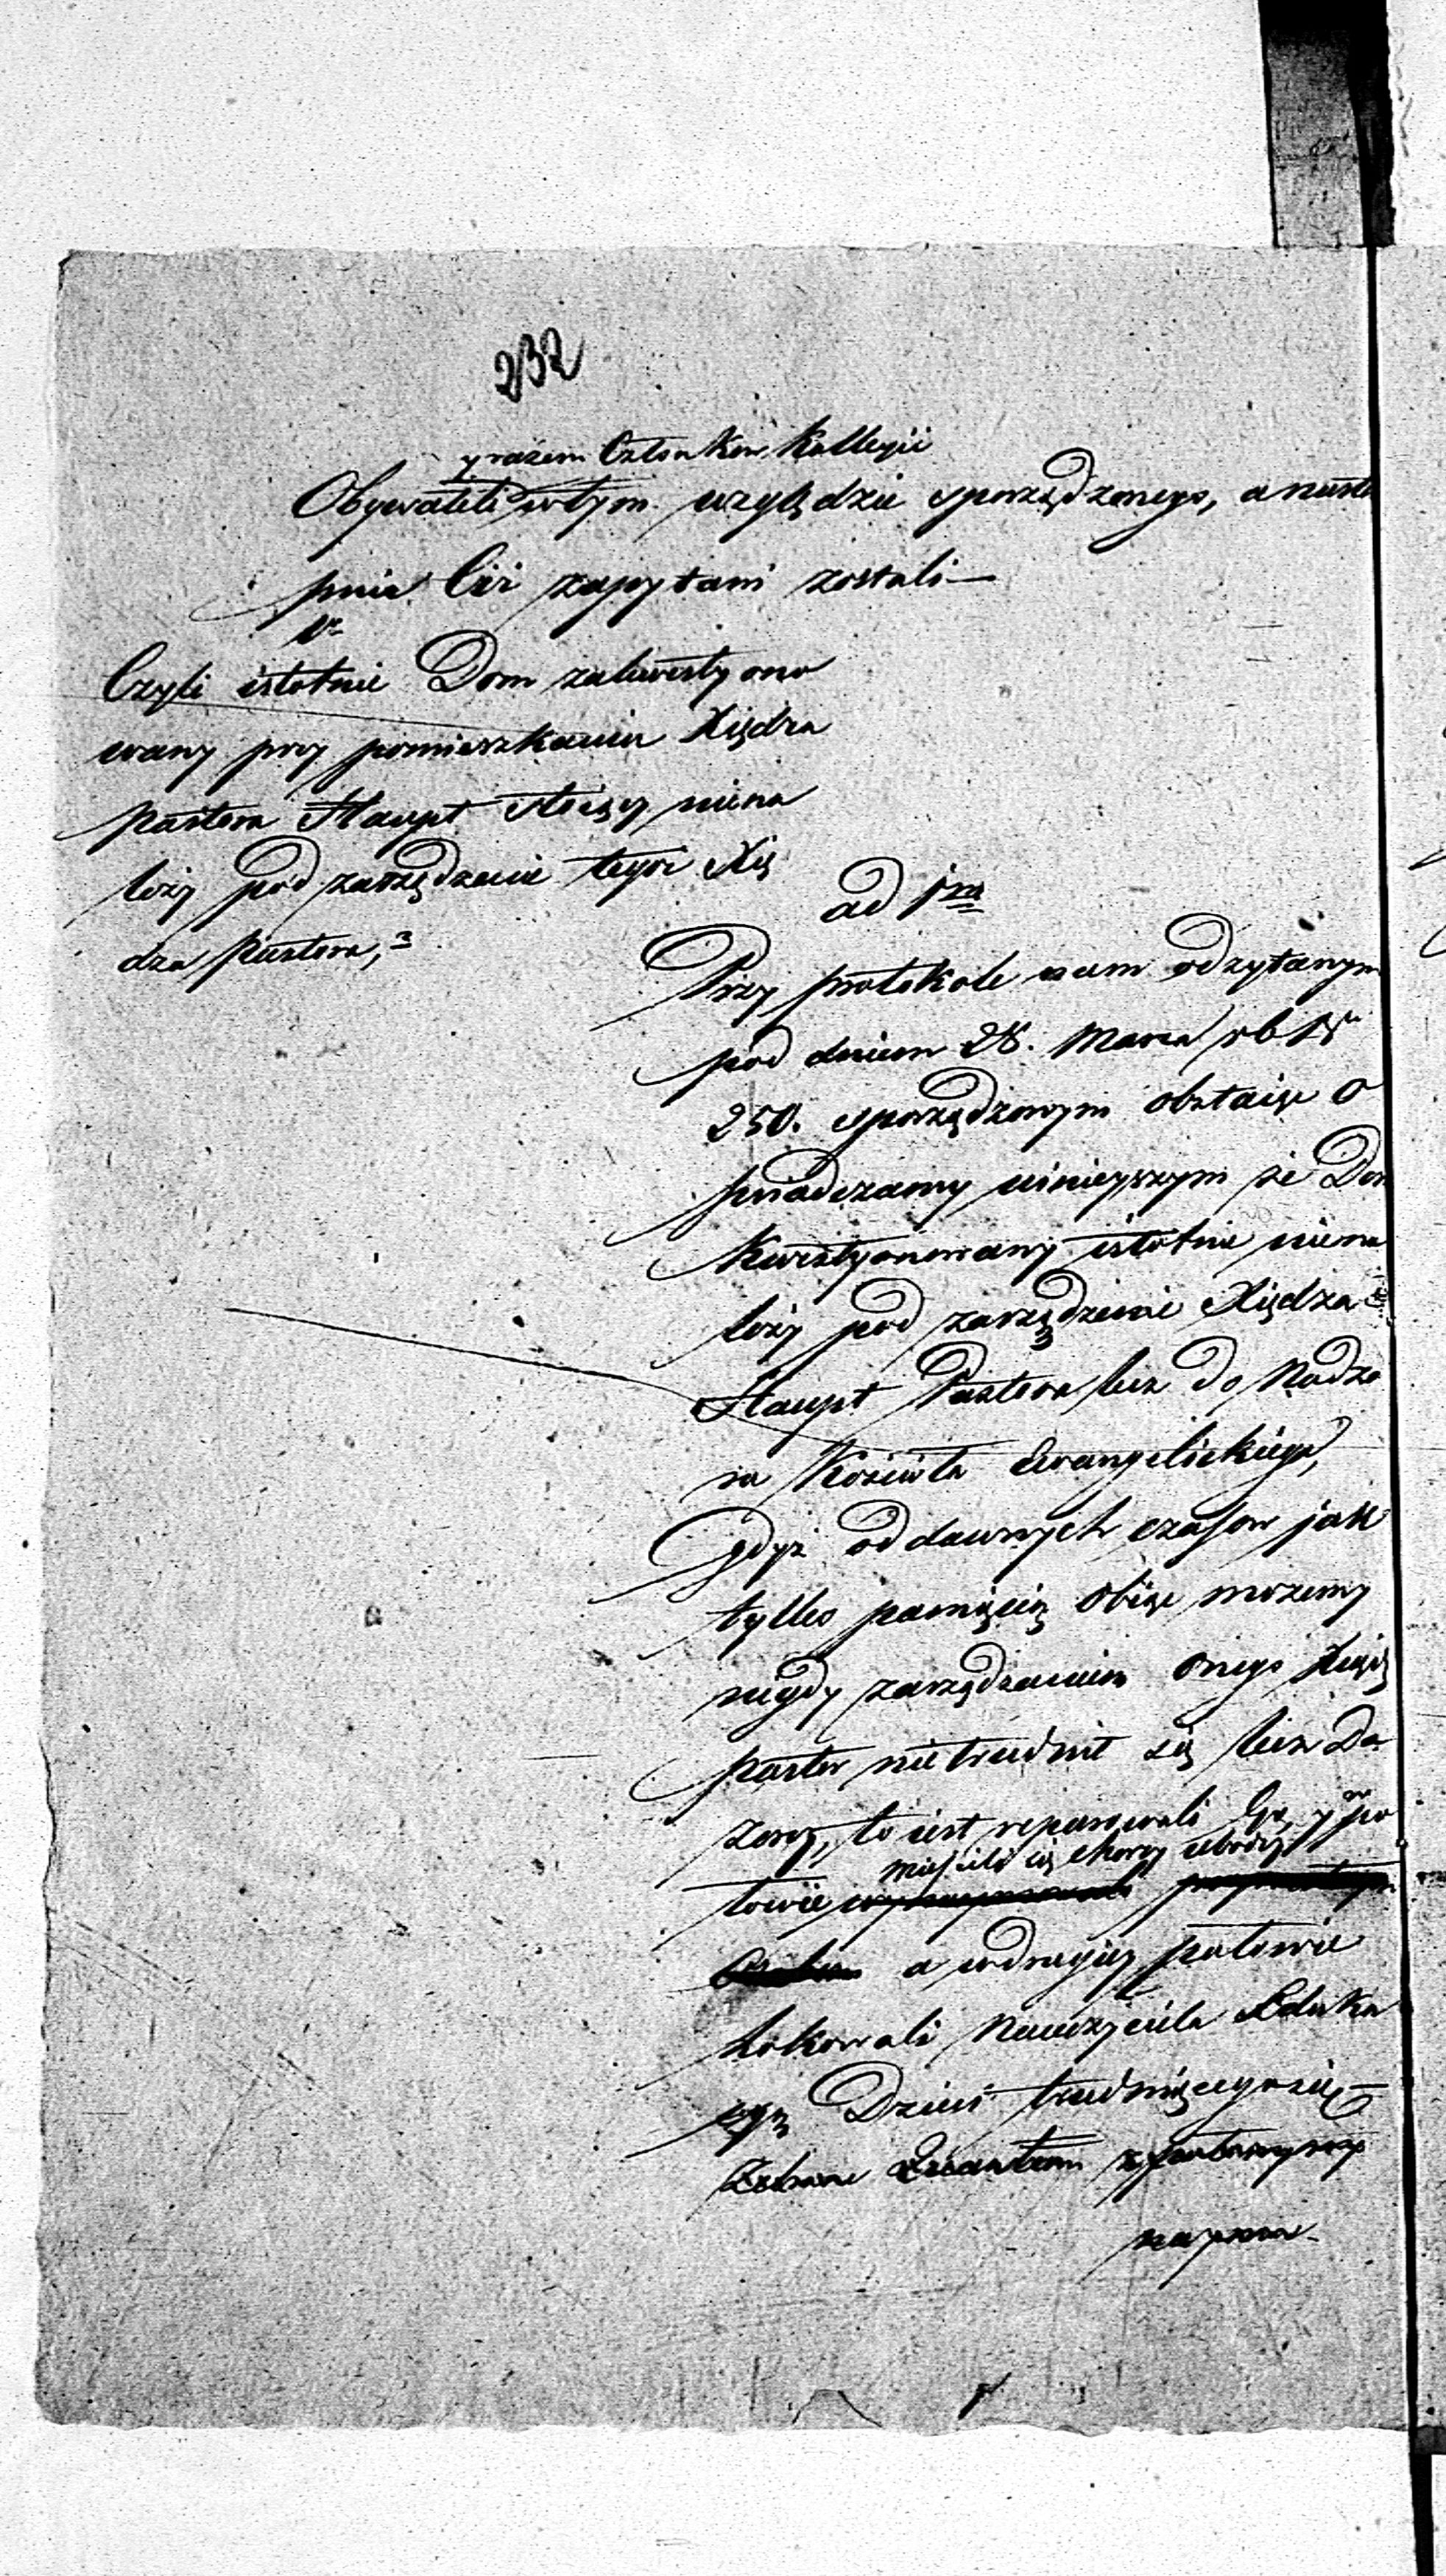 232
y razem Członków Kollegii
Obywateli w tym względzie sporządzonego, a nastę
pnie Ciż zapytani zostali—
1o
Czyli istotnie Dom zakwestyono
wany przy pomieszkaniu Xiędza
Pastora Haupt stoiący nie na
leży pod zarządzanie tegoż Xię
dza Pastora,?
ad 1mo
Przy protokole nam odczytanym
pod dniem 28. Marca rb
250. sporządzonym obstaiąc o
świadczamy ninieyszym że Dom
kwestyonowany istotnie niena
leży pod zarządzenie Xiędza
Haupt Pastora lecz do Nadzo
ru Kościoła Ewangelickiego,
Gdyż od dawnych czasow jak
tylko pamięcią obiąć możemy
nigdy zarządzaniem onego Xiądz
Pastor nie trudnił się lecz Do
zory, to iest reparowali Go, y w po
łowie mieścili się chorzy ubodzy
a w drugiey połowie
lokowali Nauczyciela Eduka
cyą Dzieci trudniącego się—
Zebrane